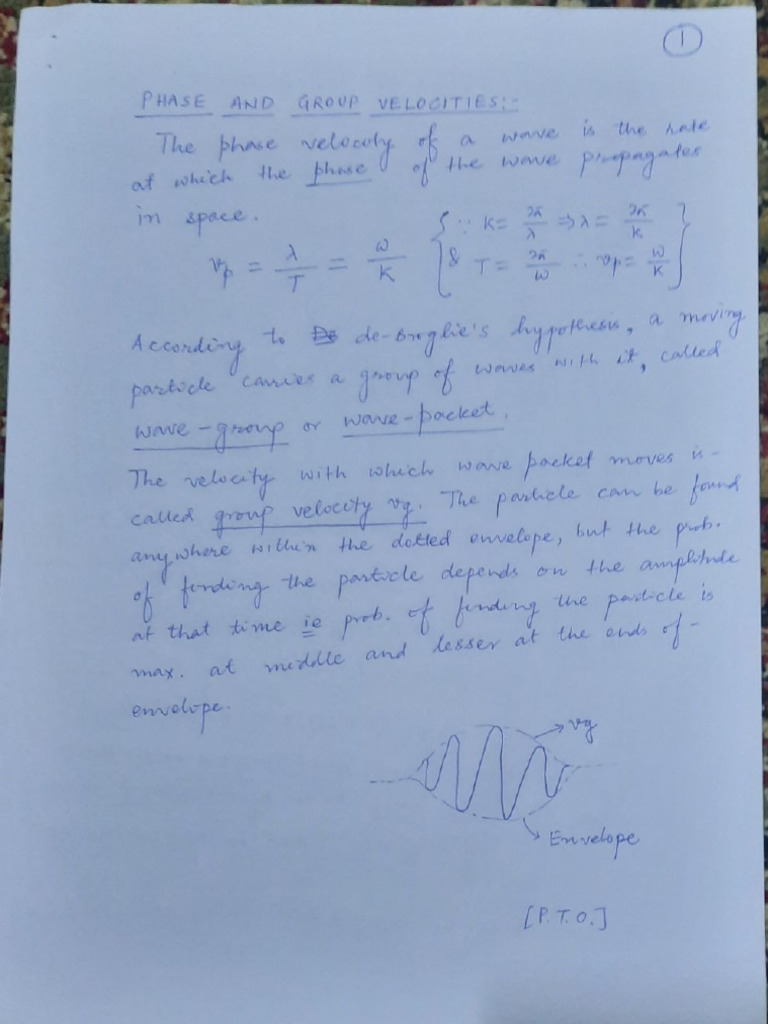 1
PHASE AND GROUP VELOCITIES:-
The phase velocity of a wave is the rate
at which the phase of the wave propagates
in space.
v_p = λ/T = ω/K { ∵ K = 2π/λ ⇒ λ = 2π/K
& T = 2π/ω ∴ v_p = ω/K }
According to de-Broglie's hypothesis, a moving
particle carries a group of waves with it, called
wave-group or wave-packet.
The velocity with which wave packet moves is-
called group velocity vg. The particle can be found
anywhere within the dotted envelope, but the prob.
of finding the particle depends on the amplitude
at that time ie prob. of finding the particle is
max. at middle and lesser at the ends of-
envelope.
vg
Envelope
[P.T.O.]